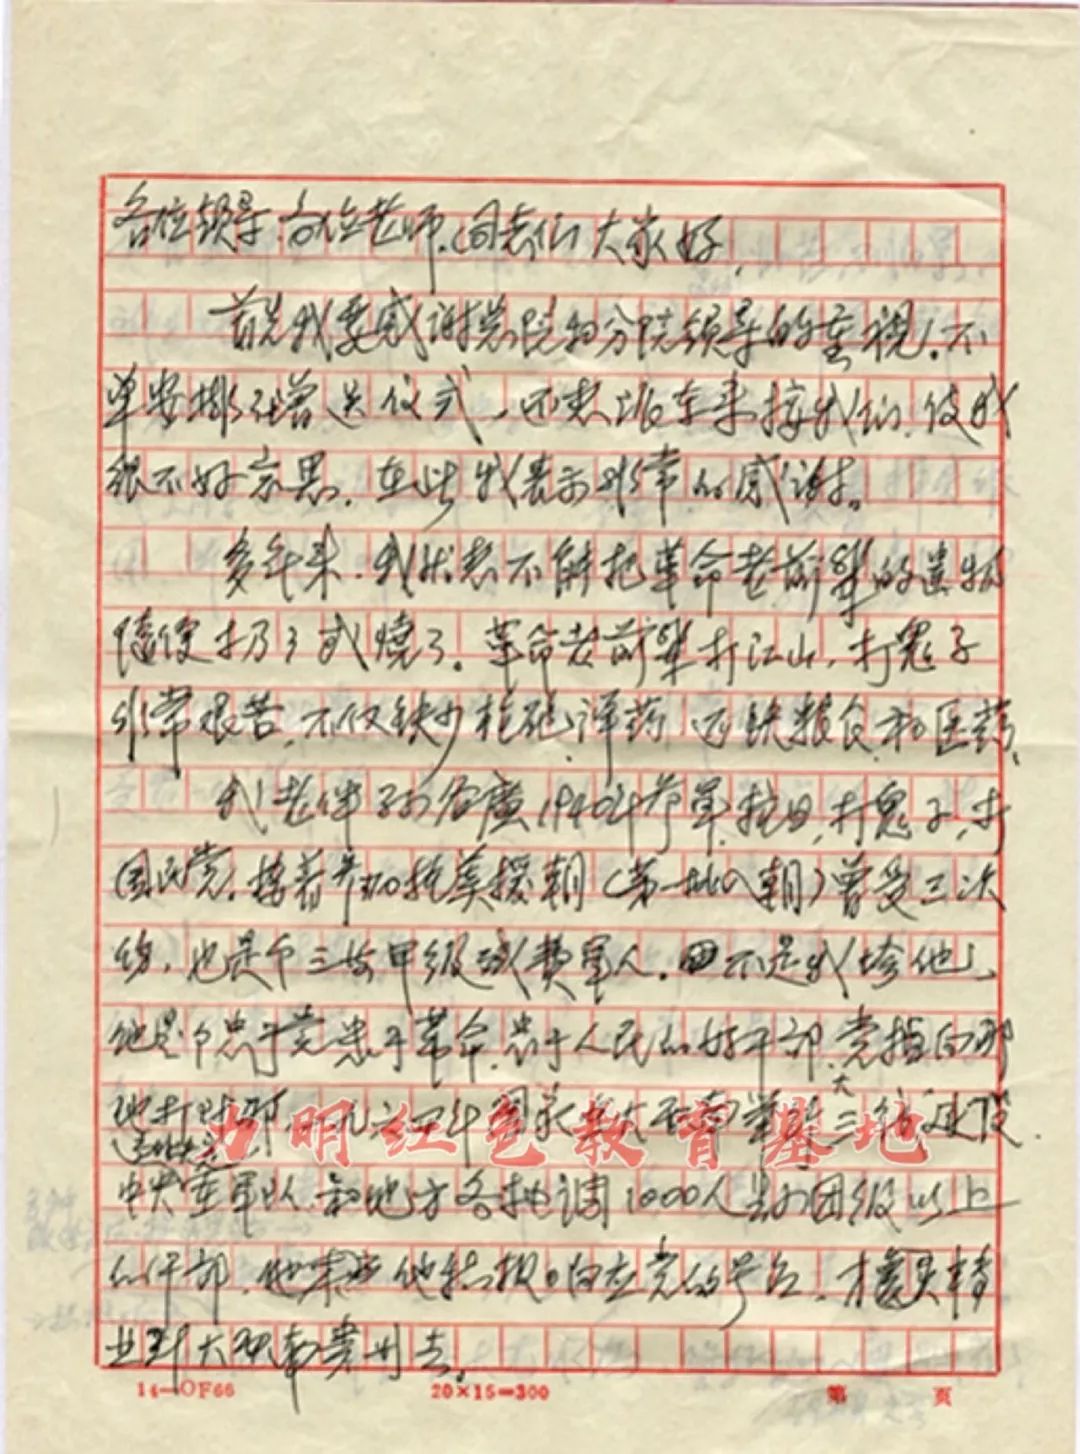 各位领导、各位老师、同志们大家好、
首先我要感谢总院和分院领导的重视。不
单安排在赠送仪式、还专派车来接我们、使我
很不好意思、在此我表示非常的感谢。
多年来、我状态不能把革命老前辈的遗物
随便扔了或烧了。革命老前辈打江山、打鬼子
非常艰苦、不仅缺少枪砲、弹药 还缺粮食和医药、
我老伴 1940年参军抗日、打鬼子、打
国民党、接着参加抗美援朝（第一批入朝）曾受三次
伤、也是个三等甲级残费军人。不是我夸他、
他是个忠于党忠于革命、忠于人民的好干部、党指向那
他打到那、一九六四年国家 大西南 大三线建设、
中央 军队和地方各抽调1000人 团级以上
的干部、他 他积极响应党的号召、才 妻
业到大西南贵州去。
力明红色教育基地
14—OF66
20×15=300
第 页